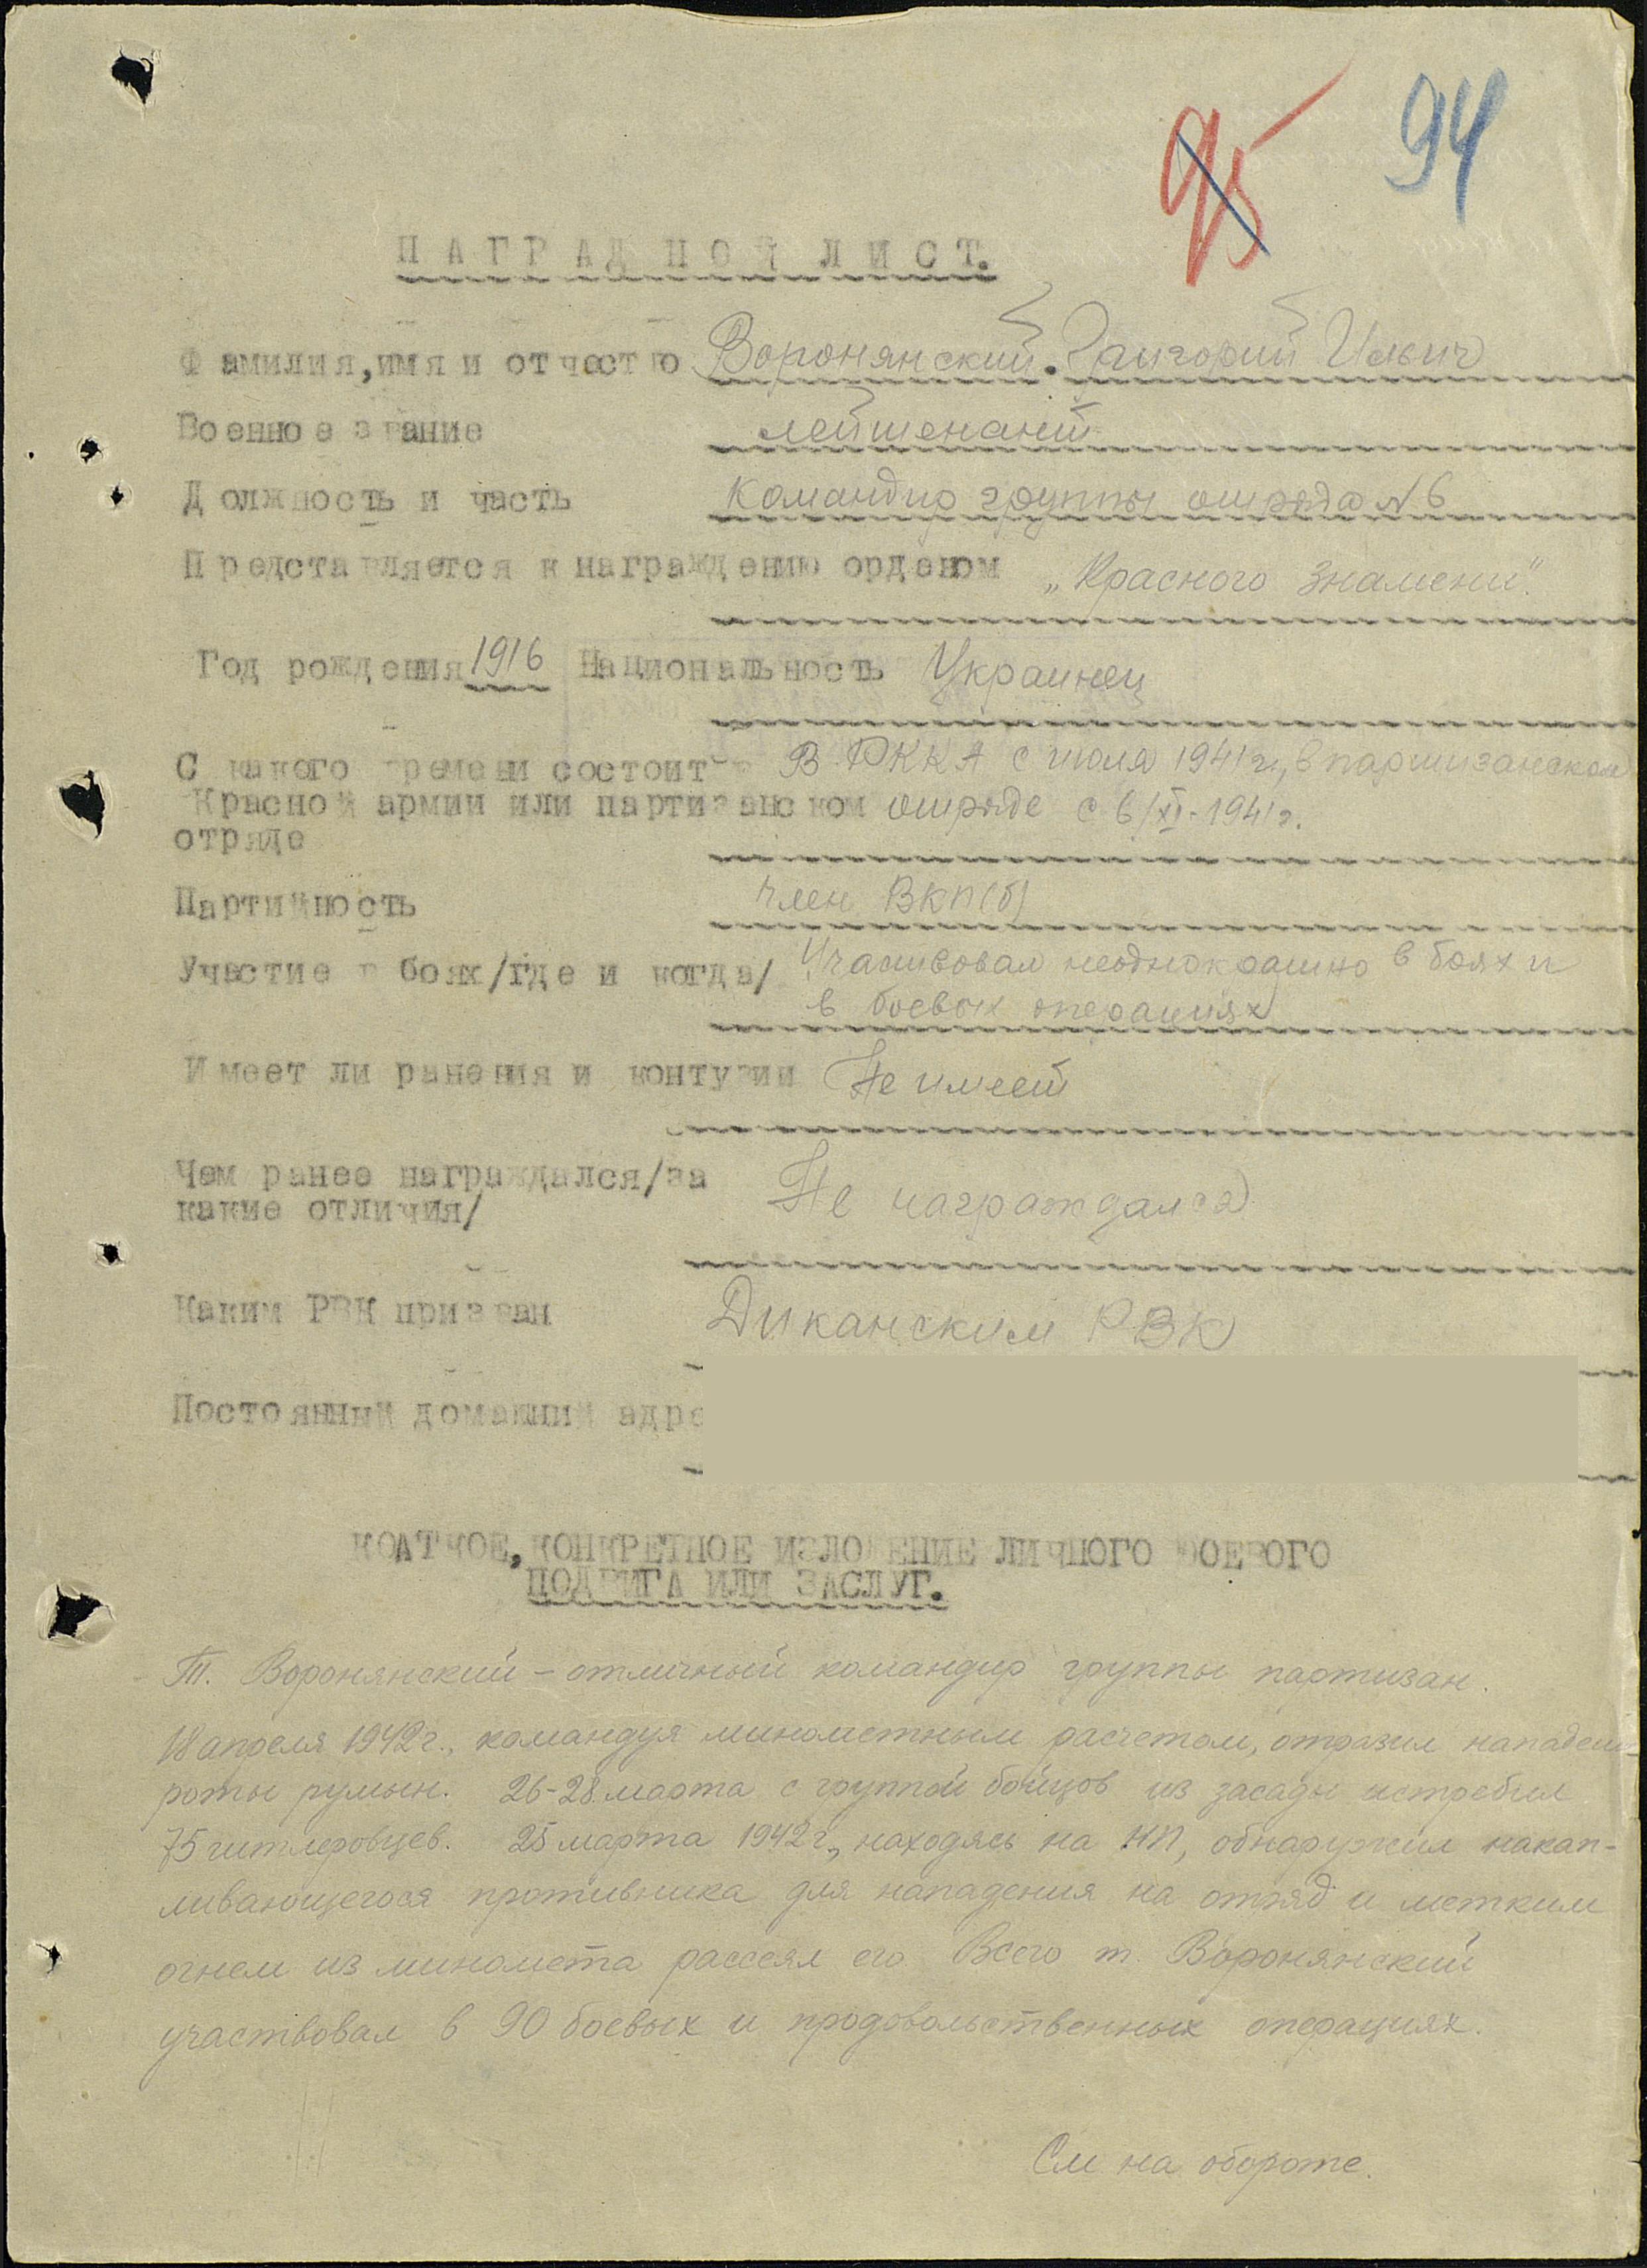 95 94
НАГРАДНОЙ ЛИСТ.
Фамилия,имя и отчество Воронянский. Григорий Ильич
Военное звание лейтенант
Должность и часть Командир группы отряда №6
Представляется к награждению орденом „Красного Знамени".
Год рождения 1916 Национальность Украинец
С какого времени состоит в В РККА с июля 1941 г., в партизанском
Красной армии или партизанском отряде с 6/XI-1941г.
отряде
Партийность Член ВКП(б)
Участие в боях/где и когда/ Участвовал неоднократно в боях и
в боевых операциях
Имеет ли ранения и контузии Не имеет
Чем ранее награждался/за Не награждался
какие отличия/
Каким РВК призван Диканским РВК
Постоянный домашний адре
КОАТКОЕ, КОНКРЕТНОЕ ИЗЛОЖЕНИЕ ЛИЧНОГО БОЕВОГО
ПОДВИГА ИЛИ ЗАСЛУГ.
Т. Воронянский – отличный командир группы партизан.
18 апреля 1942г., командуя минометным расчетом, отразил нападен
роты румын. 26-28 марта с группой бойцов из засады истребил
75 гитлеровцев. 25 марта 1942г., находясь на НП, обнаружил накап-
ливающегося противника для нападения на отряд и метким
огнем из миномета рассеял его Всего т. Воронянский
участвовал в 90 боевых и продовольственных операциях.
См на обороте.